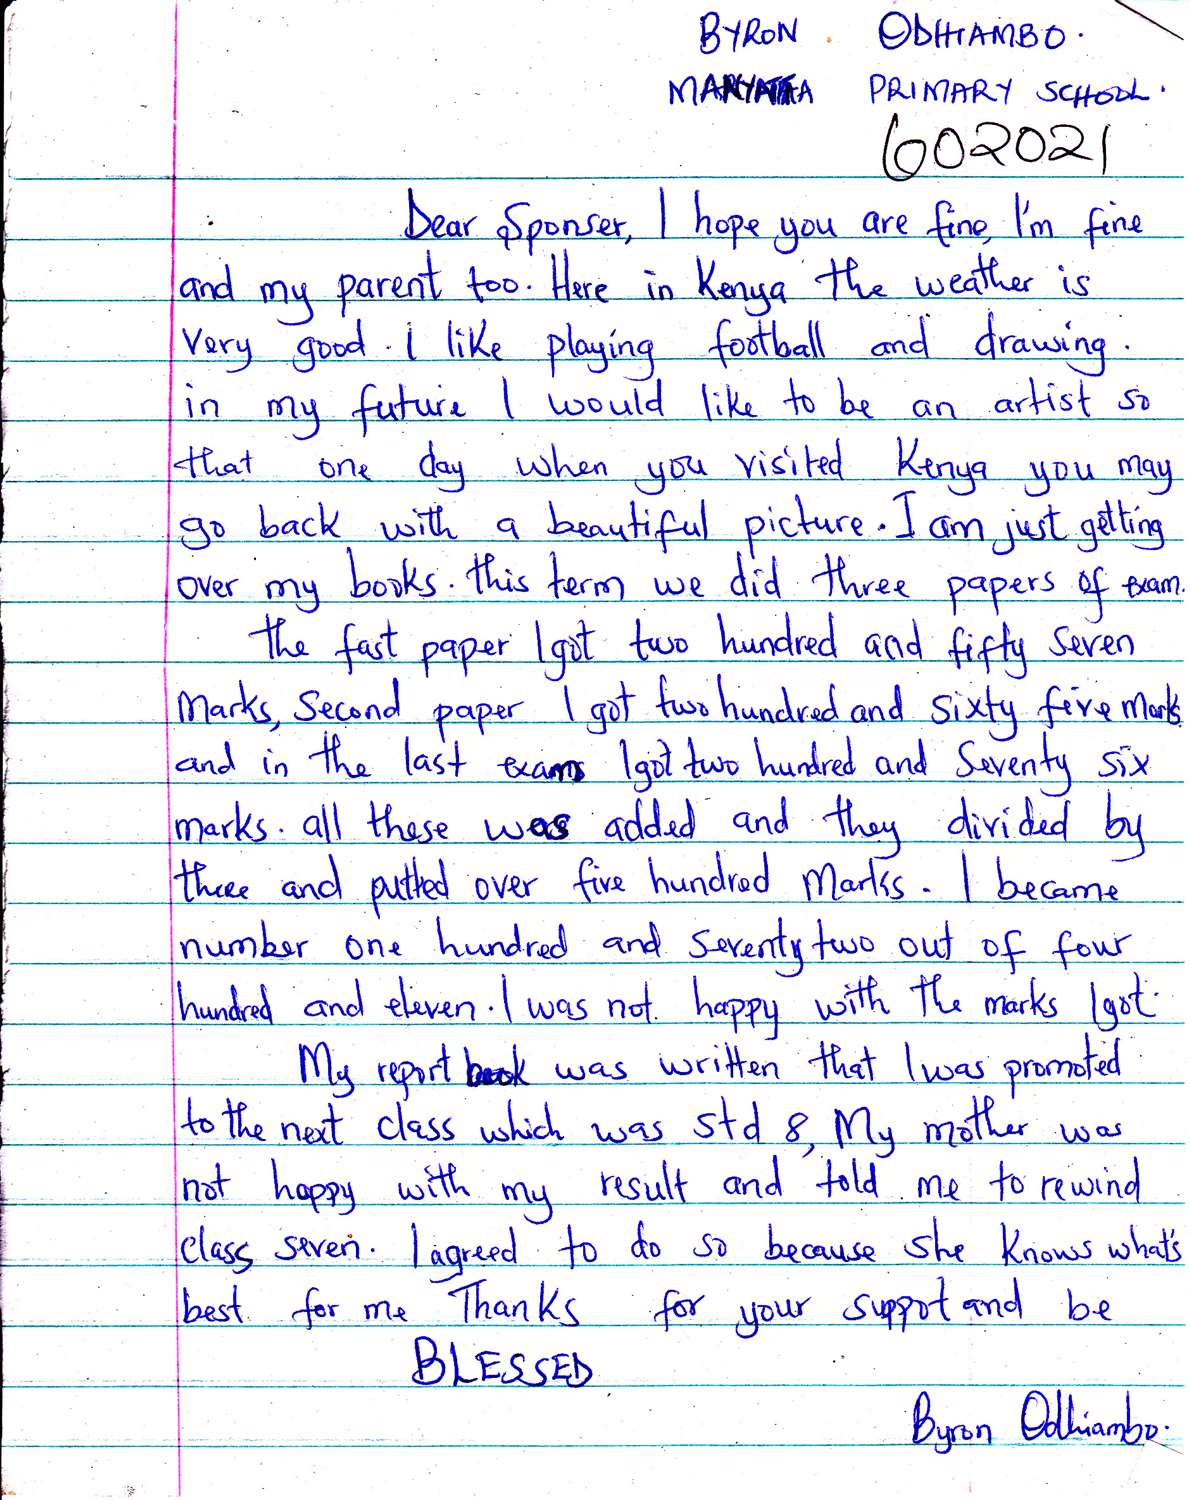 BYRON ODHIAMBO.
MANYATTA PRIMARY SCHOOL.
602021
Dear Sponser, I hope you are fine, I'm fine
and my parent too. Here in Kenya the weather is
very good. I like playing football and drawing.
in my future I would like to be an artist so
that one day when you visited Kenya you may
go back with a beautiful picture. I am just getting
over my books. this term we did three papers of exam.
the fast paper I got two hundred and fifty seven
marks, Second paper I got two hundred and sixty five marks
and in the last exams I got two hundred and Seventy six
marks. all these was added and they divided by
three and putted over five hundred marks. I became
number one hundred and seventy two out of four
hundred and eleven. I was not happy with the marks I got.
My report book was written that I was promoted
to the next class which was std 8, My mother was
not happy with my result and told me to rewind
class seven. I agreed to do so because she knows what's
best for me Thanks for your suppot and be
BLESSED
Byron Odhiambo.